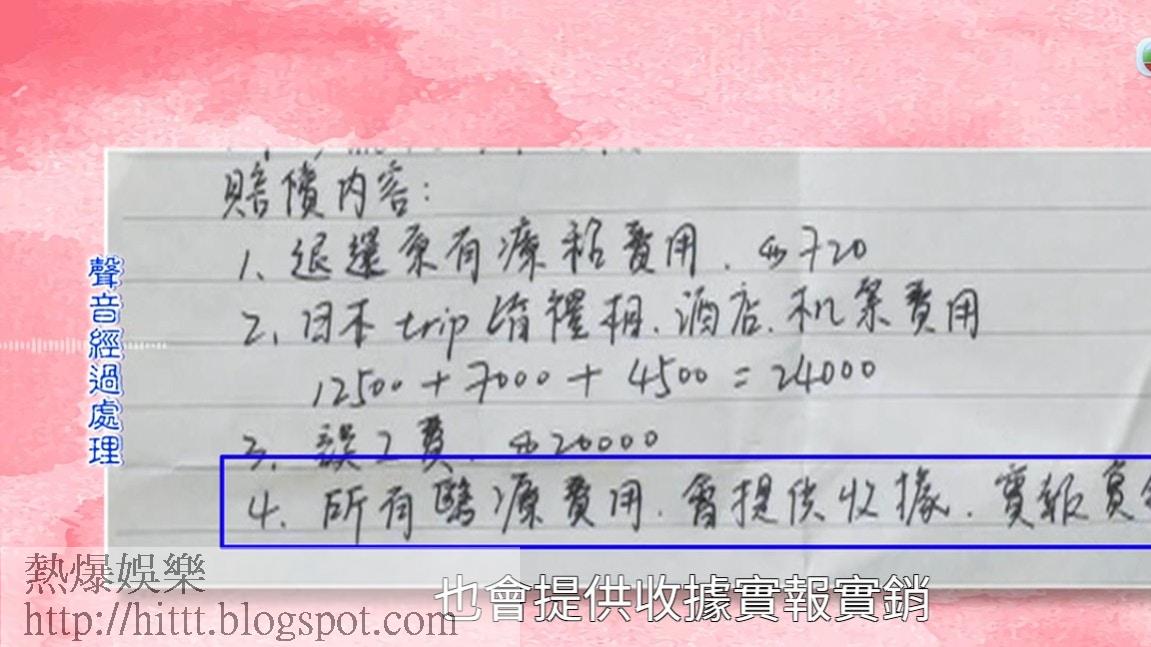 賠償内容:
1. 退還原有療程費用. $720
2. 日本 trip 婚禮相. 酒店. 机票費用
12500 + 7000 + 4500 = 24000
3. 誤工費. $20000
4. 所有醫療費用. 會提供收據. 實報實
聲音經過處理
也會提供收據實報實銷
熱爆娛樂
http://hittt.blogspot.com